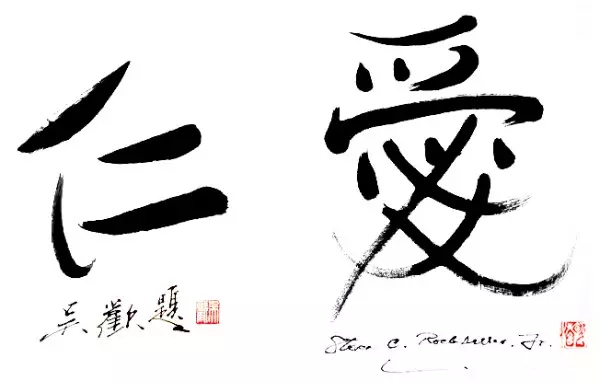 仁愛
吳歡題
Steve C. Rockefeller. Jr.